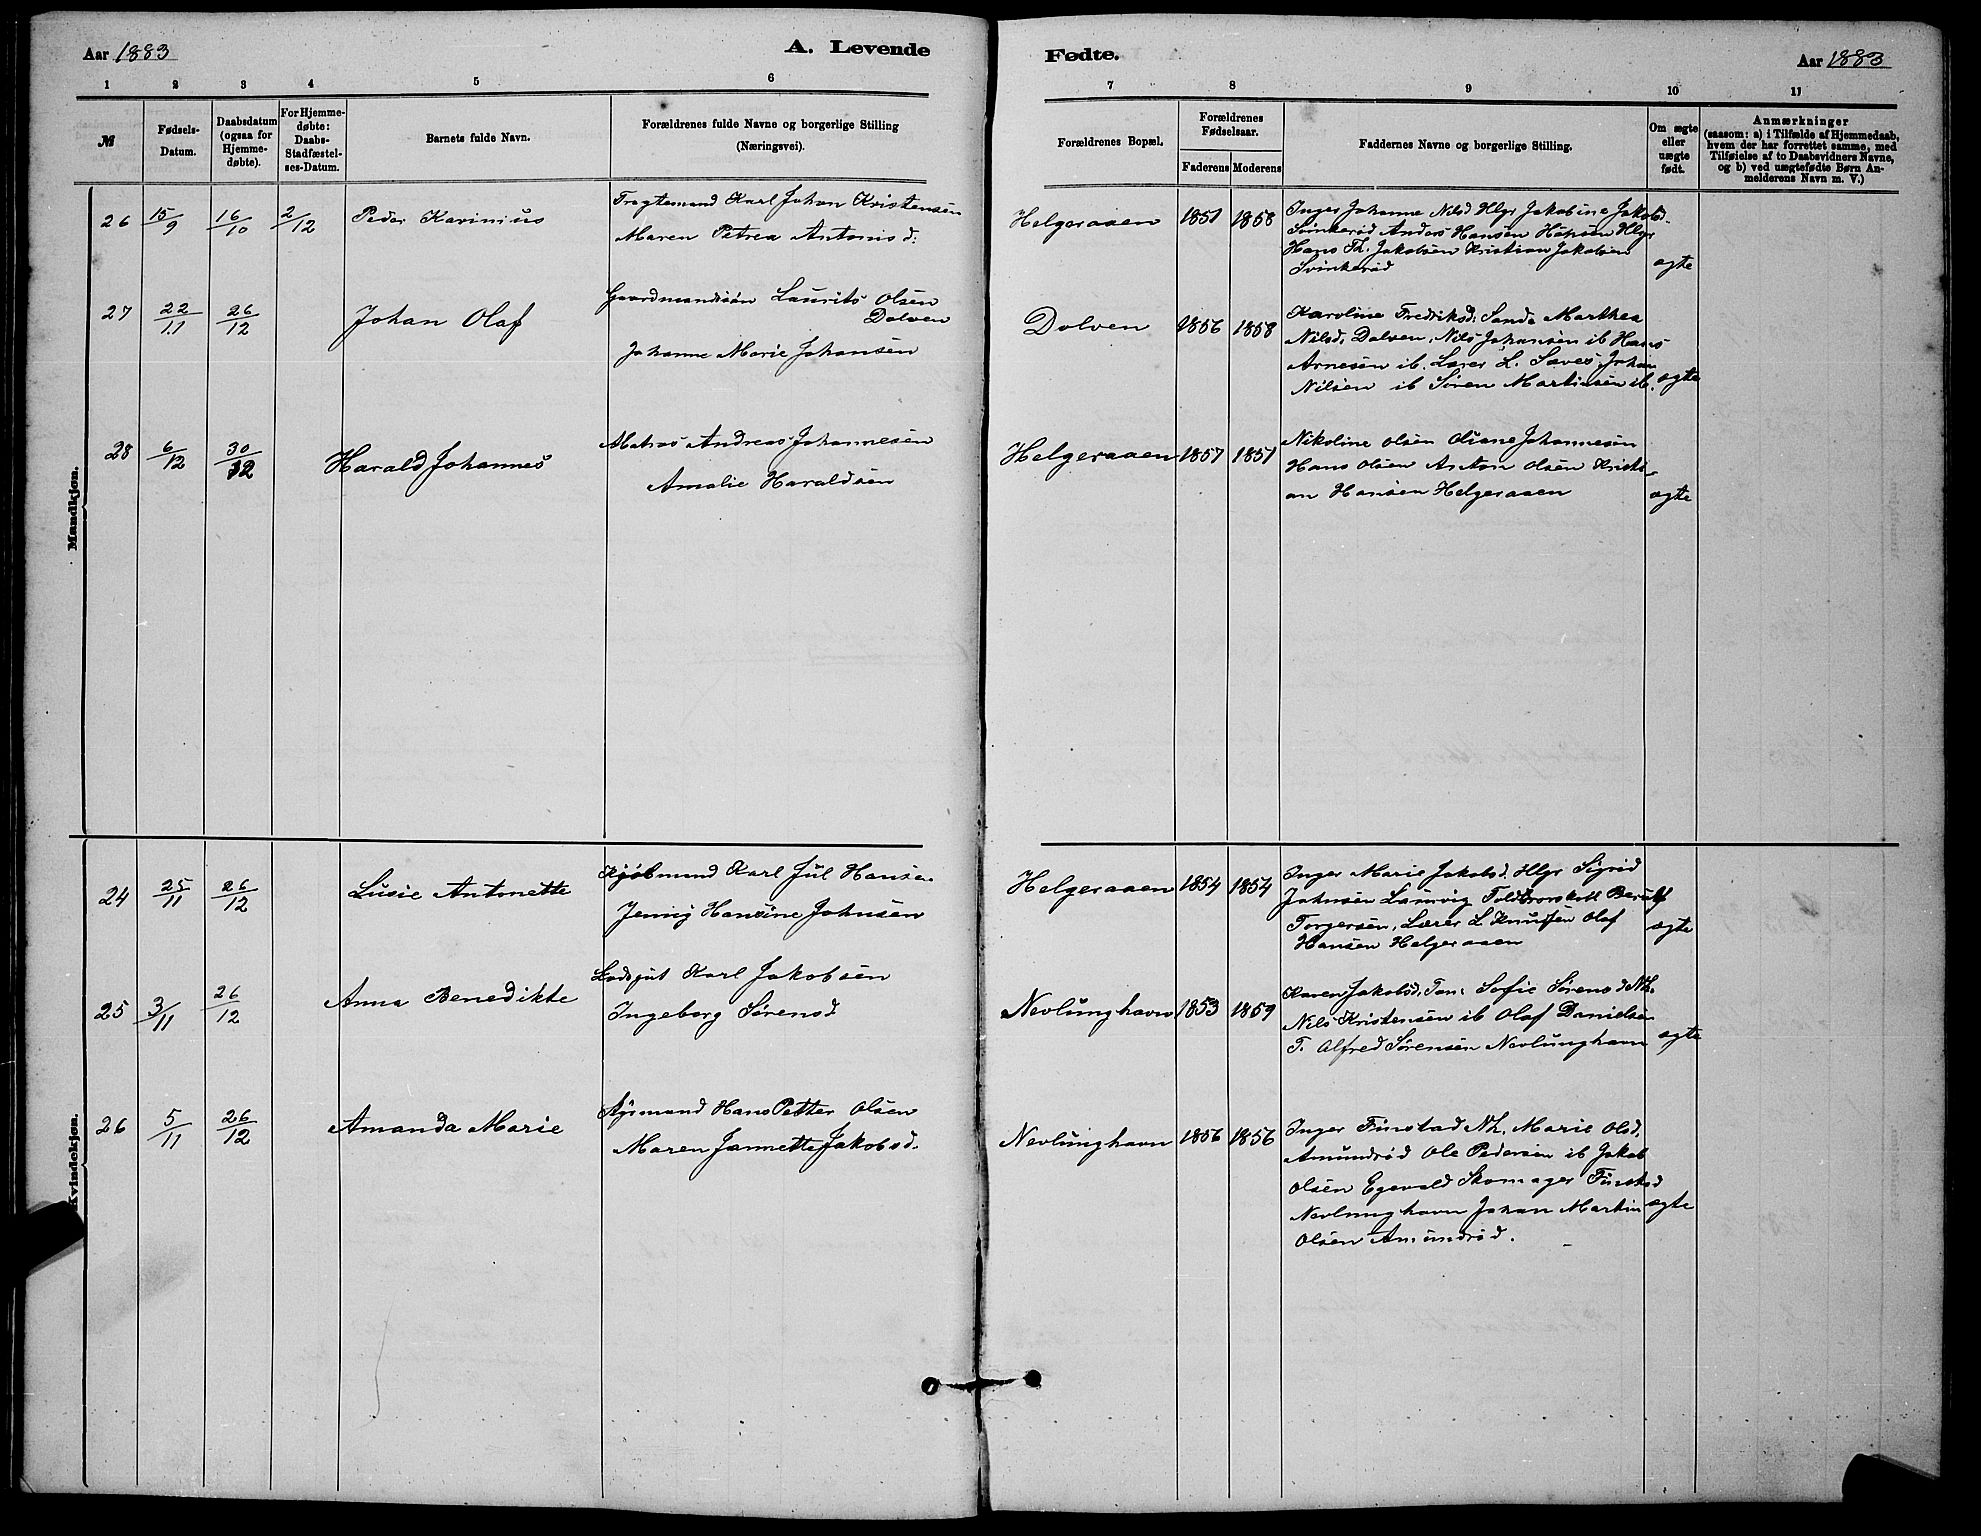 Aar 1883
A. Levende
1 2 3 4 5 6
M
Fødsels-
Datum.
Daabsdatum
(ogsaa for
Hjemme-
døbte).
For Hjemme-
døbte:
Daabs-
Stadfæstel-
ses-Datum.
Barnets fulde Navn.
Forældrenes fulde Navne og borgerlige Stilling
(Næringsvei).
Mandkjøn.
26 15/9 16/10 2/12 Peder Karinius
Fragtemand Karl Johan Kristensen
Maren Petrea Antonisd:
27 22/11 26/12 Johan Olaf
Gaardmandssøn Laurits Olsen
Dolven
Johanne Marie Johansen
28 6/12 30/12 Harald Johannes
Matros Andreas Johannesen
Amalie Haraldsen
Kvindekjøn.
24 25/11 26/12 Lusie Antonette
Kjøbmand Karl Jul Hansen
Jenny Hansine Johnsen
25 3/11 26/12 Anna Benedikte
Lodsgut Karl Jakobsen
Ingeborg Sørensd
26 5/11 26/12 Amanda Marie
Fyrmand Hans Petter Olsen
Maren Jannette Jakobsd.
Fødte.
Aar 1883
7 8 9 10 11
Forældrenes Bopæl.
Forældrenes
Fødselsaar.
Faderens Moderens
Faddernes Navne og borgerlige Stilling.
Om ægte
eller
uægte
født.
Anmærkninger
(saasom: a) i Tilfælde af Hjemmedaab,
hvem der har forrettet samme, med
Tilføielse af to Daabsvidners Navne,
og b) ved uægtefødte Børn An-
melderens Navn m. V.)
Helgeraaen 1851 1858
Inger Johanne Nilsd Hlgr Jakobine Jakobsd.
Svinkerød Anders Hansen Hlgr
Hans Th. Jakobsen Kristian Jakobsen
Svinkerød
ægte
Dolven 1856 1858
Karoline Fredriksd: Sanda Marthea
Nilsd, Dolven, Nils Johansen ib Hans
Arnesen ib. Lærer L. Johan
Nilsen ib Søren Martinsen ib.
ægte
Helgeraaen 1857 1851
Nikoline Olsen Oliane Johannesen
Hans Olsen Anton Olsen Kristi-
an Hansen Helgeraaen
ægte
Helgeraaen 1854 1854
Inger Marie Jakobsd. Hlgr Sigrid
Johnsen Laurvig
Torgersen, Lærer L Knutsen Olaf
Hansen Helgeraaen
ægte
Nevlunghavn 1853 1859
Karen Jakobsd, Sofie Sørensd Nh.
Nils Kristensen ib Olaf Danielsen
T. Alfred Sørensen Nevlunghavn
ægte
Nevlunghavn 1856 1856
Inger Finstad Nh. Marie Olsd,
Amundrød Ole Pedersen ib Jakob
Olsen Egevold Skomager Finstad
Nevlunghavn Johan Martin
Olsen Amundrød.
ægte